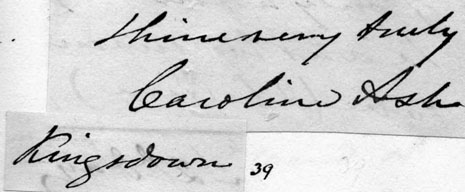 Thine very truly
Caroline Ash
Kingsdown 39